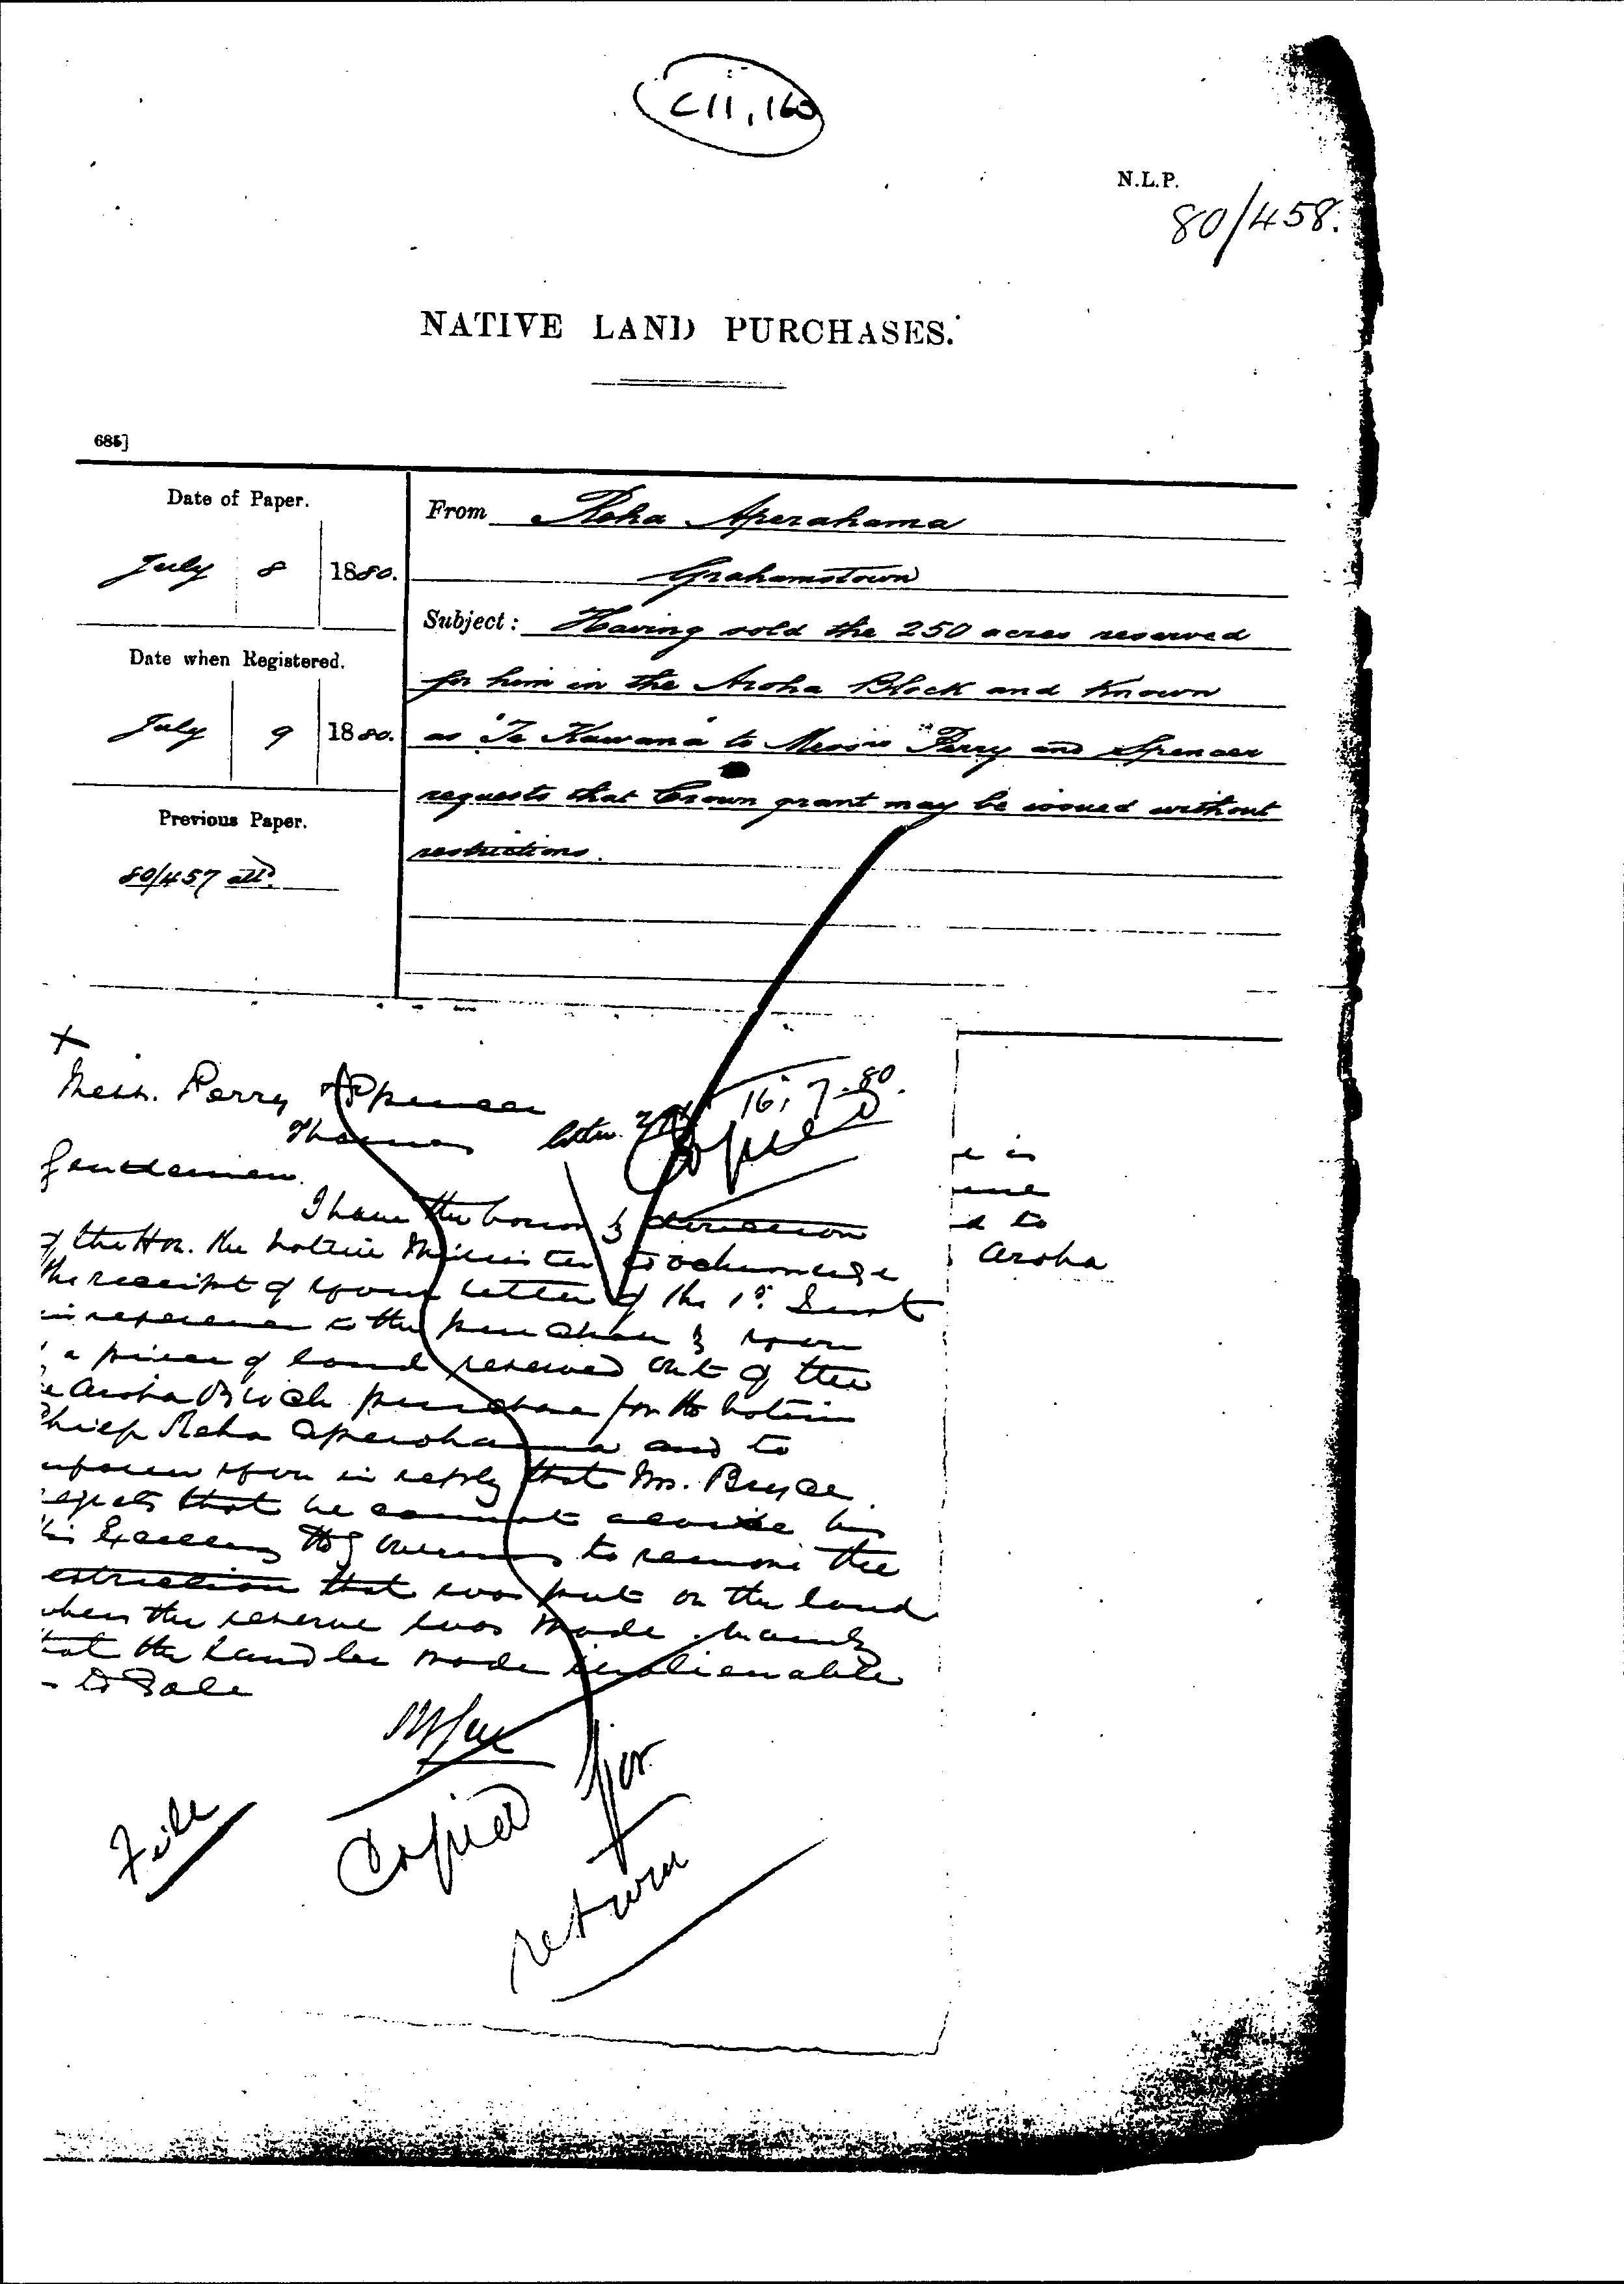 C11, 160
N.L.P.
80/458.
NATIVE LAND PURCHASES.
685]
Date of Paper.
July 8 1880.
Date when Registered.
July 9 1880.
Previous Paper.
80/457 attd.
From Reha Aperahama
Grahamstown
Subject: Having sold the 250 acres reserved
for him in the Aroha Block and known
as "Te Kawana" to Messrs "Perry and Spencer
requests that Crown grant may be issued without
restrictions.
Mess. Perry & Spencer
Thames
16.7.80.
Copied
Gentlemen.
I have the honor by direction
of the Hon. the Native Minister to acknowledge
the receipt of your letter of the 1st. Inst
in reference to the purchase by you
a piece of land reserved out of the
Aroha Block purchase for the Native
Chief Reha Aperahama and to
inform you in reply that Mr. Bryce
regrets that he cannot advise his
his Excellency the Governor to remove the
estriction that was put on the land
when the reserve was made. namely
that the Land be made inalienable
- to Sale
e is
d to
Aroha
File
Copied for
return